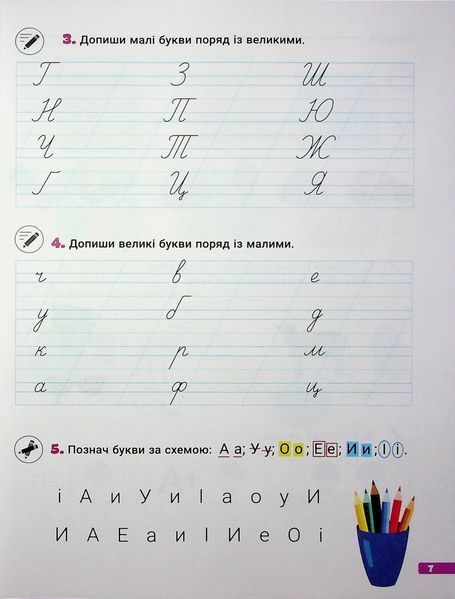 3. Допиши малі букви поряд із великими.
Г З Ш
Н П Ю
Ч Т Ж
Ґ Ц Я
4. Допиши великі букви поряд із малими.
ч в е
у б д
к р м
а ф ц
5. Познач букви за схемою: А а; У у; О о; Е е; И и; І і.
і А и У и І а о у И
И А Е а и І И е О і
7